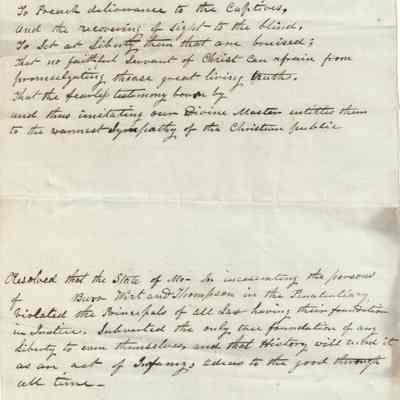 To Preach deliverance to the Captives,
and the recovering of Sight to the blind,
To Set at Liberty them that are bruised;
that no faithful Servant of Christ Can refrain from
promulgating thease great living truths.
that the fearless testimony born by
and thus imitating our Divine Master entitles them
to the warmest Sympathy of the Christian public
Resolved that the State of Mo- In incarcerating the persons
of Burr Wirt and Thompson in the Penatentiary
violated the Principals of all Law having their foundation
in Justice, Subverted the only true foundation of any
Liberty to even themselves, and that History will record it
as an act of Infamy, to the good through
all time -